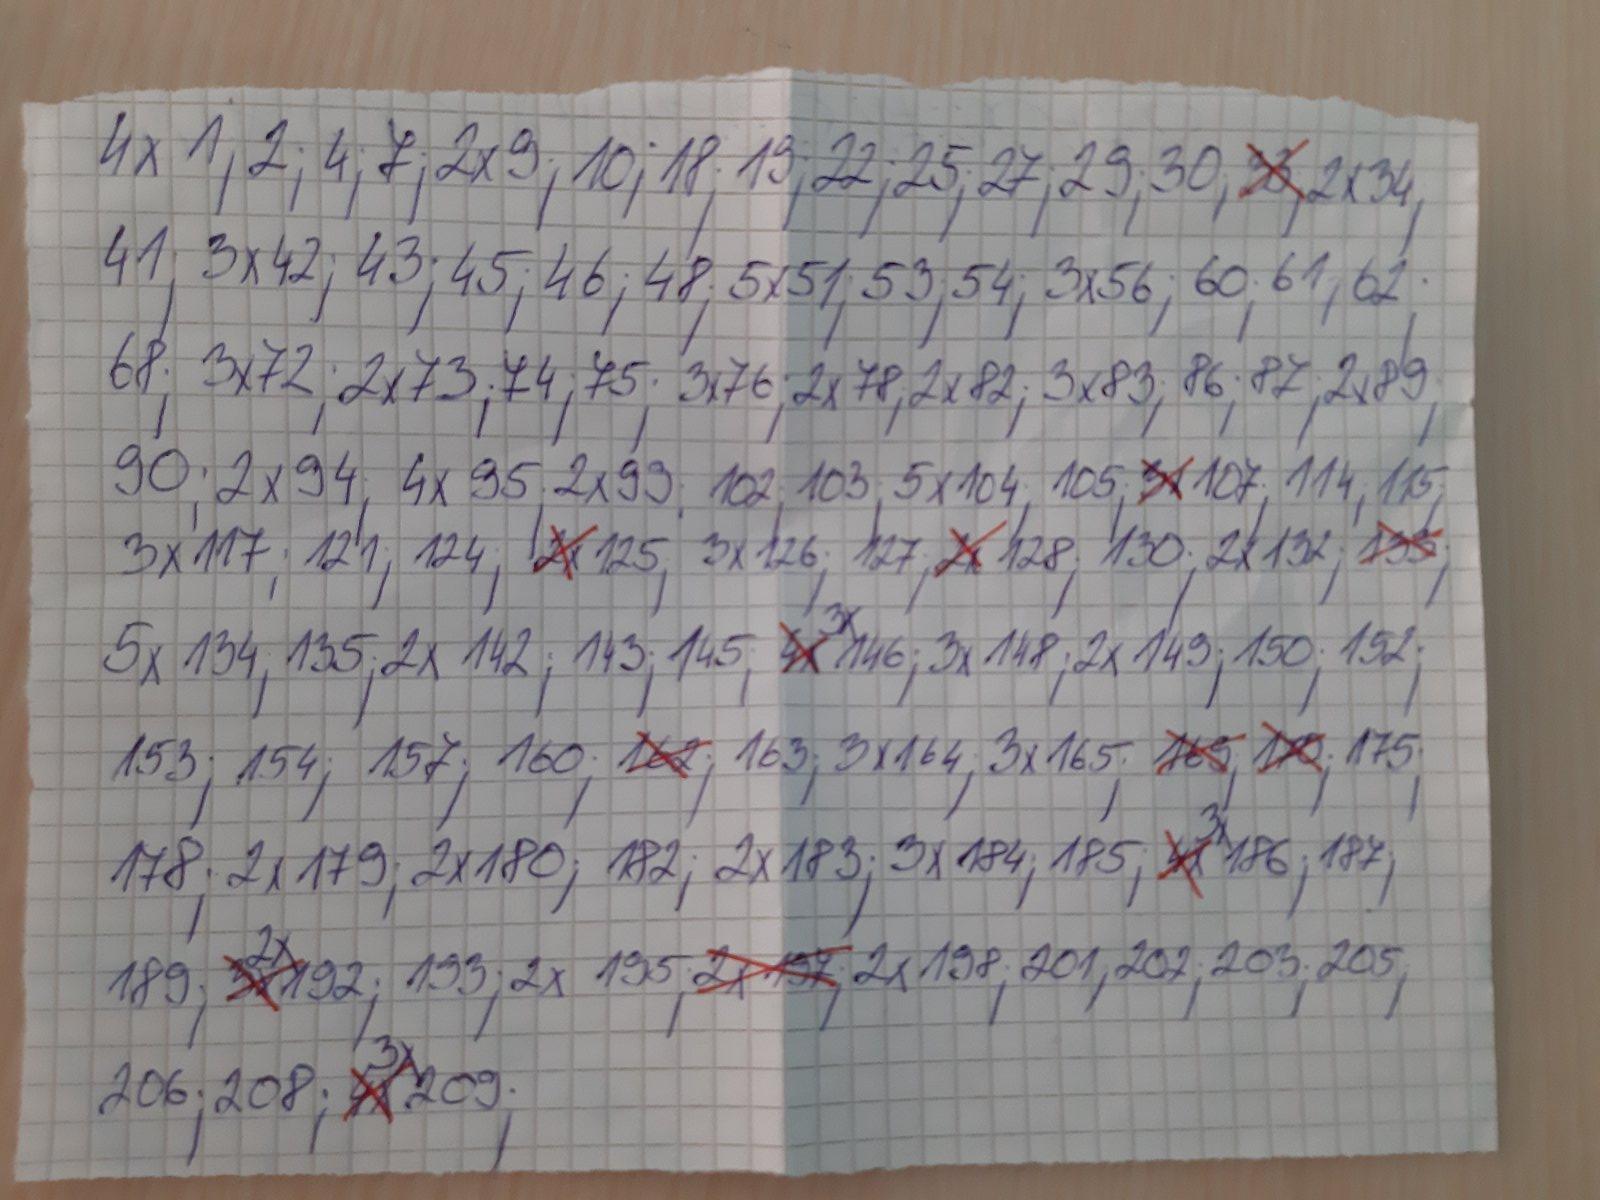 4x 1; 2; 4; 7; 2x9; 10; 18; 19; 22; 25; 27; 29; 30; 33; 2x34;
41; 3x42; 43; 45; 46; 48; 5x51; 53; 54; 3x56; 60; 61; 62;
68; 3x72; 2x73; 74; 75; 3x76; 2x78; 2x82; 3x83; 86; 87; 2x89;
90; 2x94; 4x95; 2x99; 102; 103; 5x104; 105; 3x 107; 114; 115;
3x117; 121; 124; 2x 125; 3x126; 127; 2x 128; 130; 2x132; 133;
5x 134; 135; 2x 142; 143; 145; 4x 3x 146; 3x148; 2x149; 150; 152;
153; 154; 157; 160; 162; 163; 3x164; 3x165; 175;
178; 2x179; 2x180; 182; 2x183; 3x184; 185; 4x 3x 186; 187;
189; 3x 2x 192; 193; 2x 195; 2x 197; 2x198; 201; 202; 203; 205;
206; 208; 4x 3x 209;